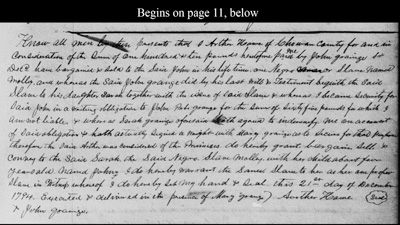 Begins on page 11, below
Know all men by these presents that I Arthr Howe of Chowan County for and in
Consideration of the Sum of one hundred & ten pounds heretofore paid me by John Grainge so
Decd have bargained & sold to the said John in his life time one Negro Slave Named
Molly, and whereas the said John Grainge did by his last Will & Testament bequeath the said
Slave to his daughter Sarah together with the issue of said Slave & whereas I became Security for
said John in a writing Obligation to John for the Sum of Sixty five pounds for which I
am not liable, & whereas Sarah Grainge aforesaid hath agreed to indemnify me on account
of said obligation & hath actually Signed a
therefore the said Arthr was considered of the Premises do hereby grant bargain Sell &
Convey to the said Sarah the said Negro Slave Molly, with her child about four
years old Named Johney I do hereby warrant the Same Slave to her as her proper
Slave in Witness whereof I do hereby Set My hand & Seal this 21st day of December
1794 Executed & delivered in the presence of Mary Grainge } Arthr Howe (Seal)
& John Grainge.